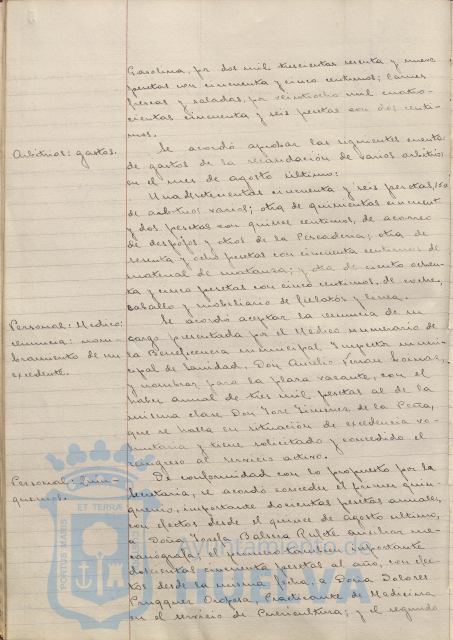 Gasolina, por dos mil trescientas sesenta y nueve
pesetas con cincuenta y cinco centimos; Carnes
frescas y saladas, por veintiocho mil cuatro-
cientas cincuenta y seis pesetas con dos centi-
mos.
Arbitrios: gastos.
Se acordó aprobar las siguientes cuentas
de gastos de la recaudación de varios arbitrios
en el mes de agosto último:
Una de trescientas cincuenta y seis pesetas,
de arbitrios varios; otra de quinientas cincuenta
y dos pesetas con quince centimos, de acarreo
de despojos y otros de la Pescaderia; otra de
sesenta y ocho pesetas con cincuenta centimos de
material de matanza; y otra de ciento ochen-
ta y cinco pesetas con cinco centimos, de coche,
caballo y mobiliario de fielatos y linea.
Personal: Medico:
renuncia: nom-
bramiento de un
excedente.
Se acordó aceptar la renuncia de su
cargo presentada por el Médico numerario de
la Beneficencia municipal e Inspector muni-
cipal de Sanidad, Don Aurelio
y nombrar para la plaza vacante, con el
haber annual de tres mil pesetas al de la
misma clase Don José Jimenez de la Peña,
que se halla en situación de excedencia vo-
luntaria y tiene solicitado y concedido el
reingreso al servicio activo.
Personal: Quin-
quenios.
De conformidad con lo propuesto por la
Secretaria, se acordó conceder el primer quin-
quenio, importante doscientas pesetas anuales,
con efectos desde el quince de agosto último,
a Doña Josefa auxiliar me-
canógrafa; tambien importante
doscientas cincuenta pesetas al año, con efec-
tos desde la misma fecha, a Doña Dolores
Oropesa, Practicante de Medicina
en el servicio de Puericultura; y el segundo
PORTUS MARIS
ET TERRAE
Ayuntamiento de
HUELVA